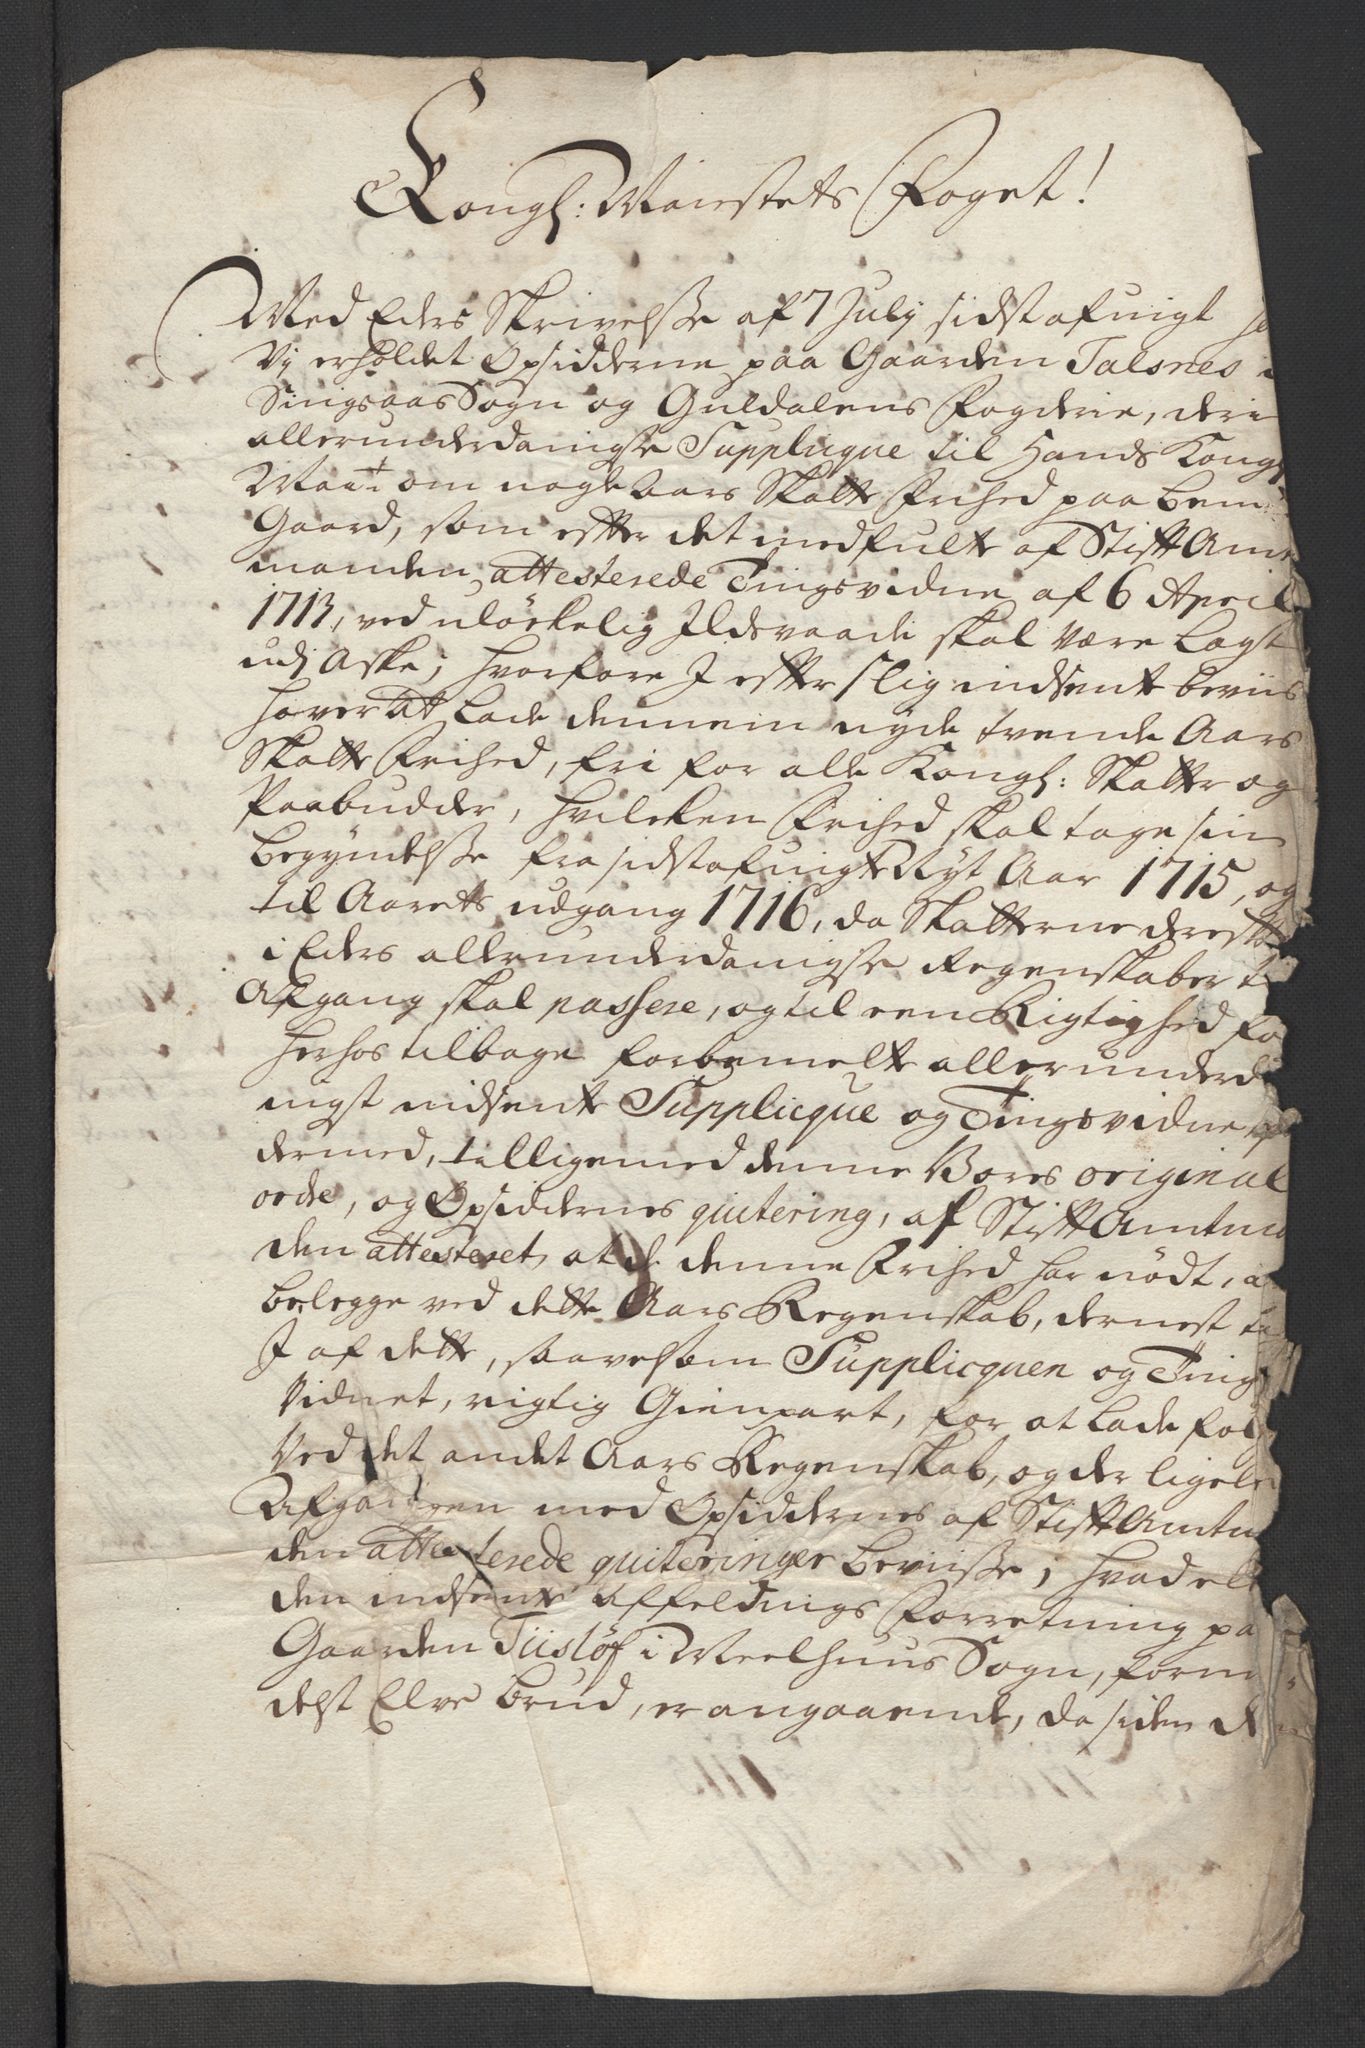 Kongl: Maiestets Foget!
Med Eders Skrivelse af 7 July sidst afvigt
Vj erholdet Opsidderne paa Gaarden Talsnes i
Singsaas Sogn og Guldalens Fogderie, deris
allerunderdanigste Supplicque til Hands Kongl
Maitt om nogle Aars Skatte Frihed paa bem
Gaard, som efter det medfulte af Stift Amt
manden attesterede Tingsvidne af 6 April
1713, ved ulökkelig Ildsvaade skal være lagt
udj Aske; hvorfore I efter slig indsente beviis
haver at lade dennem nyde tvende Aars
Skatte Frihed, fri for alle Kongl: Skatter og
Paabudder, hvilcken Frihed skal tage sin
begyndelse fra sidst afvigte Nyt Aar 1715, og
til Aarets udgang 1716, da Skatterne derefter
i Eders allerunderdanigste Regenskaber t
Afgang skal passere, og til een Rigtighed fo
herhos tilbage forbemelte allerunderda
nigst indsente Supplicque og Tingsvidne,
dermed, tillige med denne Vores original
ordre, og Opsiddernes qvitering, af Stift Amtma
den attesteret, at de denne Frihed har nödt, a
belegge ved dette Aars Regenskab, dernest ta
I af dette, saavelsom Supplicquen og Tings
Vidnet, rigtig Gienpart, for at lade föl
Ved det andet Aars Regenskab, og der ligele
Afgangen med Opsiddernes af Stift Amtm
den attesterede qviteringer beviisse; hvad el
den indsente Affeldnigs Forretning pa
Gaarden Tiislöf i Meelhuus Sogn, forme
delst Elve brud, er angaaende, da siden d